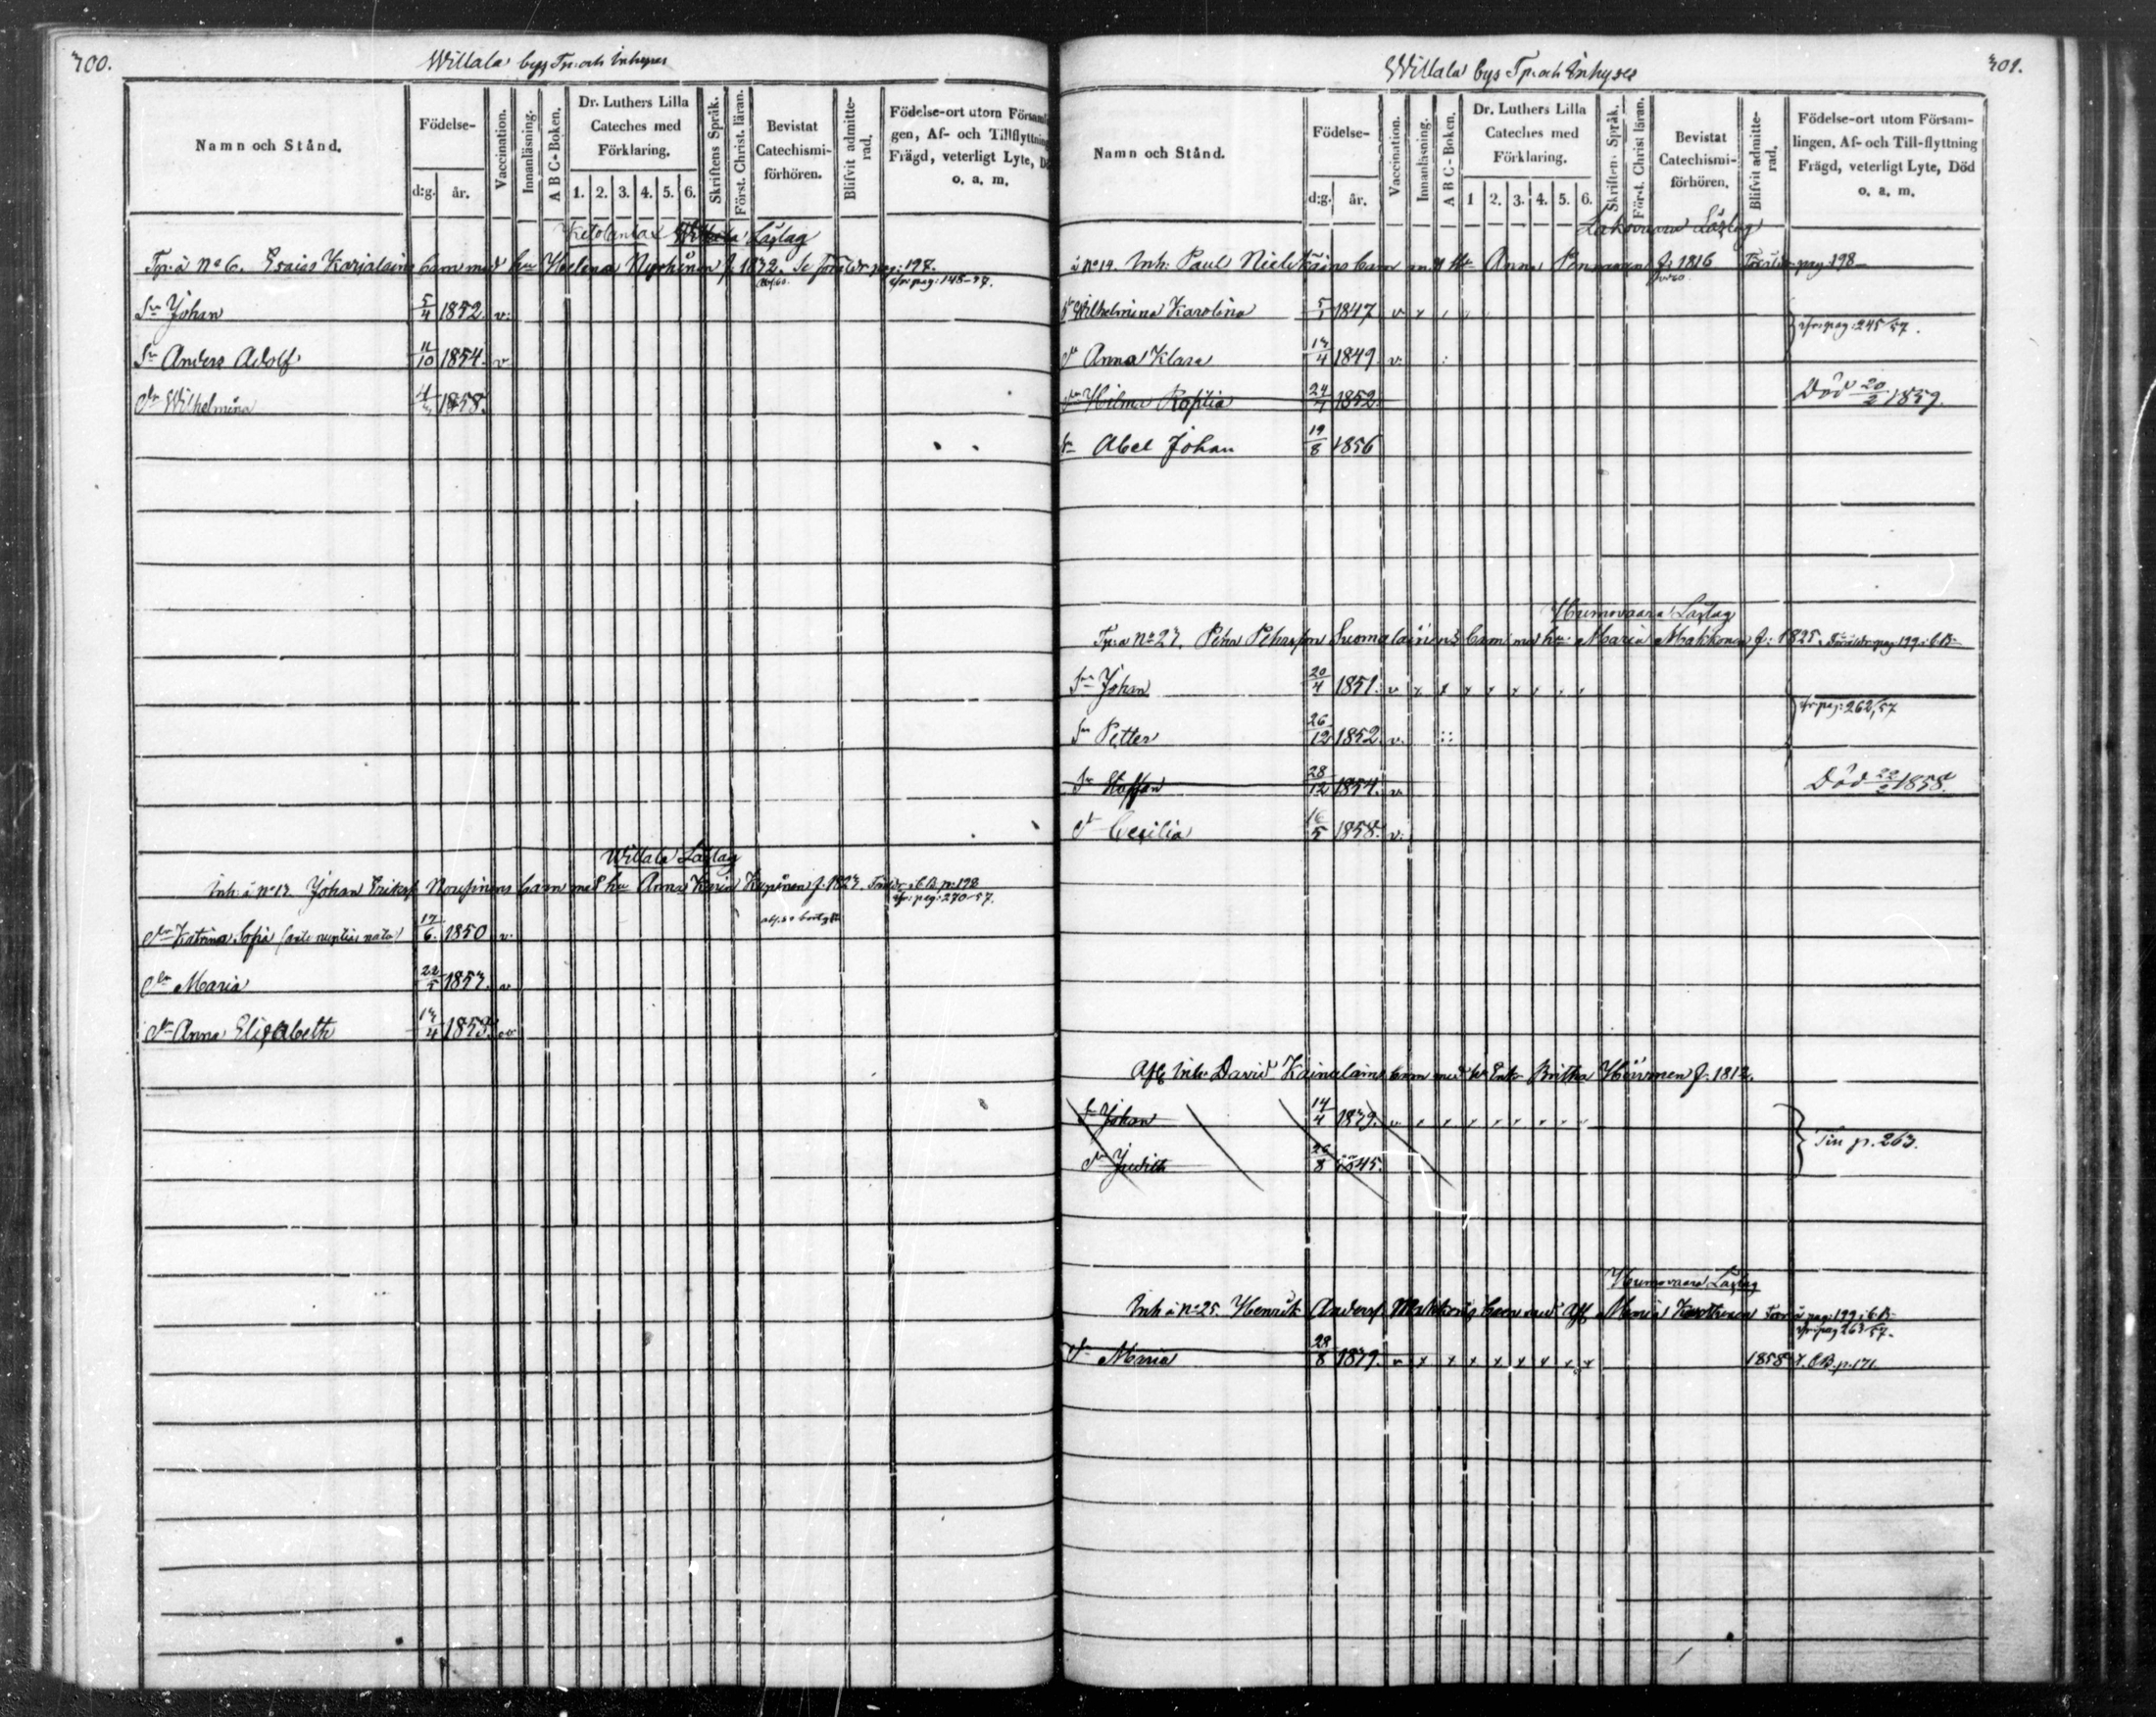 300.
Willala bys Tp: och Inhyses
Namn och Stånd.
Födelse-
d:g. år.
Vaccination.
Innanläsning.
A B C-Boken.
Dr. Luthers Lilla
Cateches med
Förklaring.
1. 2. 3. 4. 5. 6.
Skriftens Språk.
Först. Christ. läran.
Bevistat
Catechismi-
förhören.
Blifvit admitte-
rad.
Födelse-ort utom Församl
gen, Af- och Tillflyttning
Frägd, veterligt Lyte, Dö
o. a. m.
Läslag
Tp: å No 6. Esaias Karjalains barn med hu Helena f. 1832. Se föräldr. pag: 198.
cfr pag: 148-57.
Sn Johan 5/4 1852. v.
Sn Anders Adolf 11/10 1854. v.
Dr Wilhelmina 1858.
Willala Läslag
Inh: å No 13. Johan Eriksf barn med hu Anna f. 1823. C.B. p: 198
cfr: pag: 270-57.
Dr Katrina Sofia (ante nuptias nata) 17/6 1850 v.
Dr Maria 22/5 1853. v
Dr Anna Elisabeth 13/4 1858.
Willala bys Tp: och Inhyses
301.
Namn och Stånd.
Födelse-
d:g. år.
Vaccination.
Innanläsning.
A B C-Boken.
Dr. Luthers Lilla
Cateches med
Förklaring.
1 2. 3. 4. 5. 6.
Skriftens Språk.
Först. Christ läran.
Bevistat
Catechismi-
förhören.
Blifvit admitte-
rad.
Födelse-ort utom Försam-
lingen, Af- och Till-flyttning
Frägd, veterligt Lyte, Död
o. a. m.
Lahovaara Läslag
å No 14. Inh: Paul barn med Hu Anna f: 1816 pag: 198
Dr Wilhelmina Karolina 5/1 1847 v x
cfr: pag: 245/57.
Dr Anna Klara 13/4 1849 v:
Dr Hilma Rosilia 1852. Död 20/2 1859.
Sn Abel Johan 19/8 1856
Humovaara Läslag
Tp: å No 27. Pehr Pehrsson Suomalainens barn med hu: Maria Makkonen f: 1825. Föräldr: pag 199 i C.B.
Sn Johan 20/4 1851. v x x x x x x x x
cfr: pag: 262/57
Sn Petter 26/12 1852. v. ::
Sn Staffan 28/12 1854. v. Död 22/2 1858.
Dr Cesilia 16/5 1858. v.
Afl: Inh: David Kainulains barn med Enk: Britha f. 1812.
Sn Johan 14/4 1839.
Dr Judith 26/8 1845.
p. 263.
Humovaara Läslag
Inh å No 25. Henrik Andersf barn med Afl Maria pag: 199 i C.B.
cfr: pag 263/57.
Dr Maria 28/8 1839. v x x x x x x x x 1858 C.B. p. 171